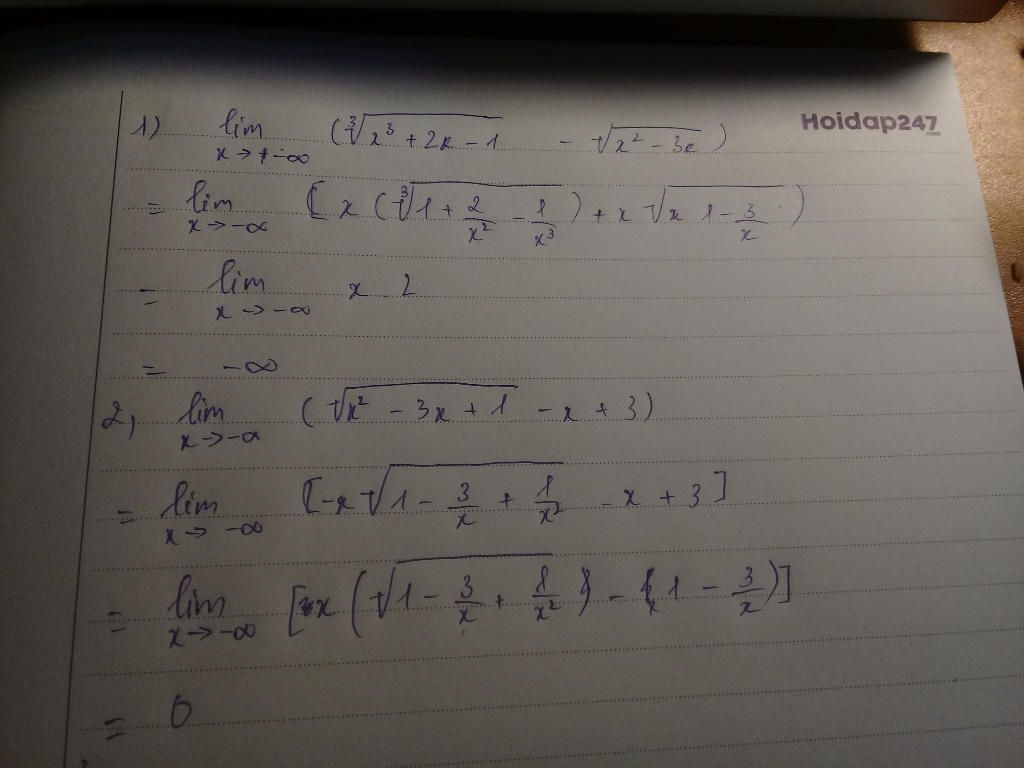 Hoidap247
.com
1) lim x→+-∞ (∛(x³ + 2x - 1) - √(x² - 3x))
= lim x→-∞ [x (∛(1 + 2/x² - 1/x³)) + x √(x 1 - 3/x))
= lim x→-∞ x 2
= -∞
2, lim x→-∞ (√(x² - 3x + 1) - x + 3)
= lim x→-∞ [-x √(1 - 3/x + 1/x²) - x + 3]
= lim x→-∞ [x (√(1 - 3/x + 1/x²)) - (1 - 3/x)]
= 0